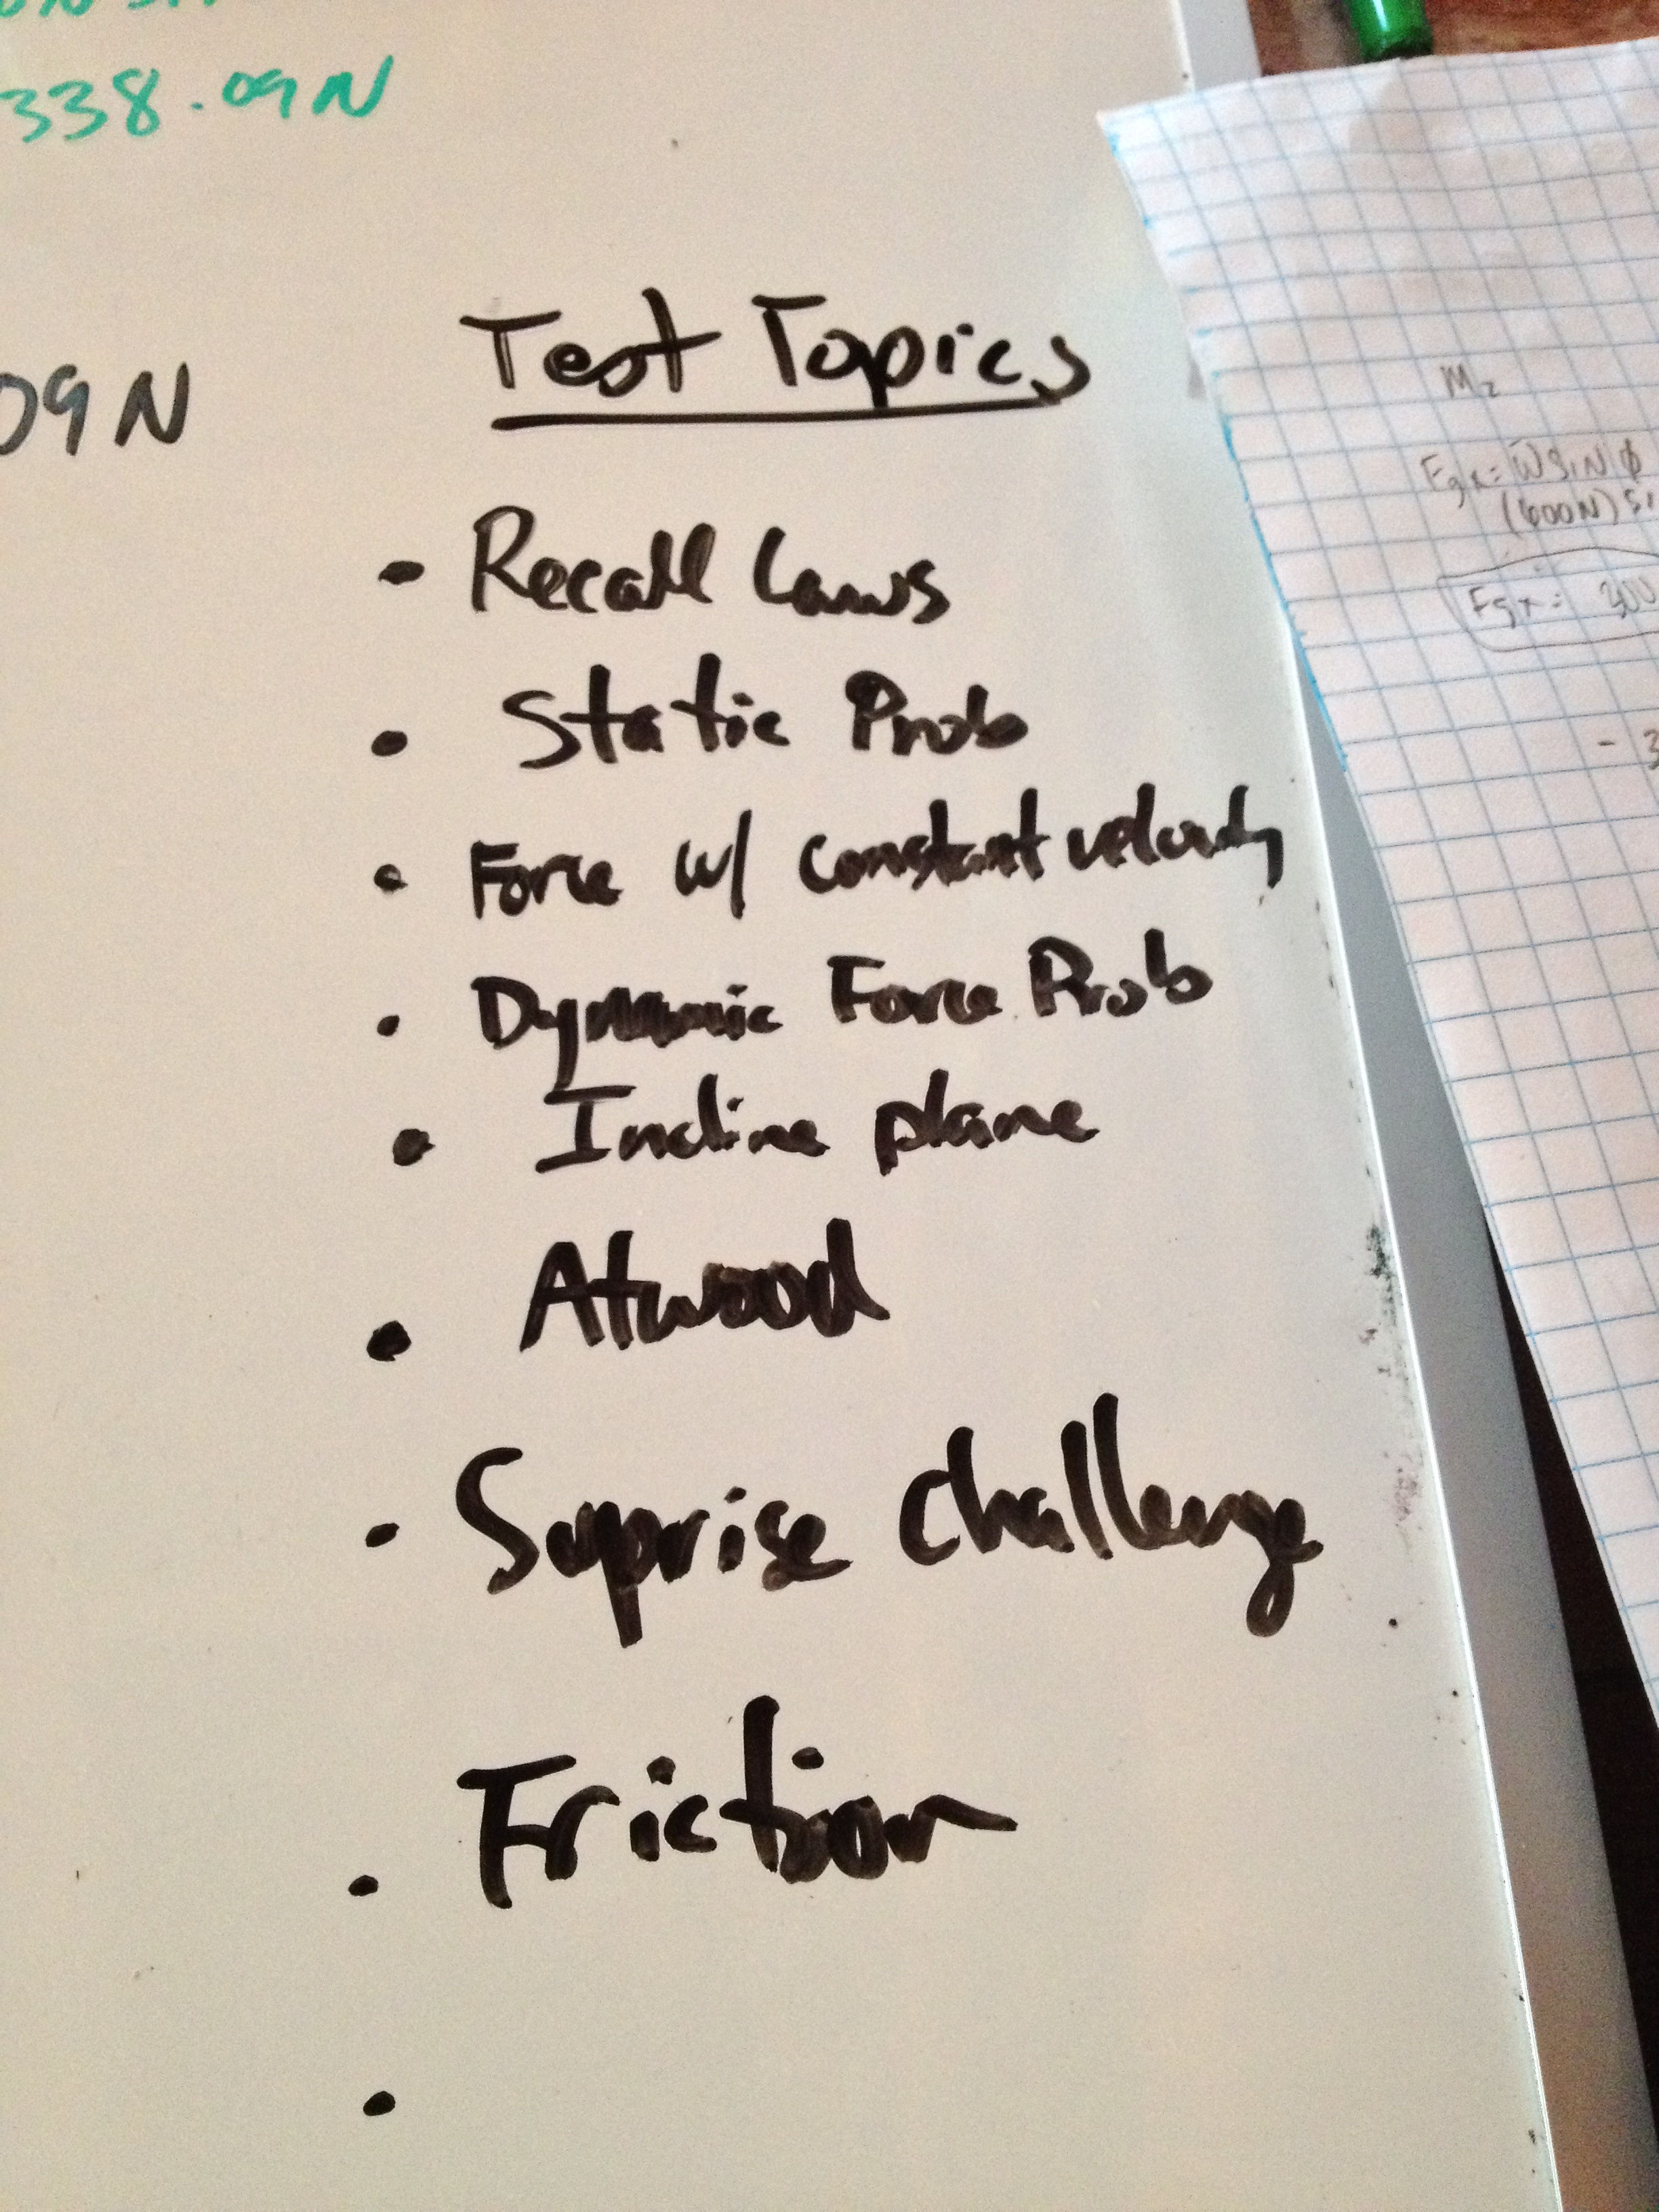 338.09N
09N
Test Topics
• Recall Laws
• Static Prob
• Force w/ constant velocity
• Dynamic Force Prob
• Incline plane
• Atwood
• Suprise Challenge
• Friction
•
M₂
Fgx = W SIN ϕ
(600N) Si
Fgx = 300
- 3